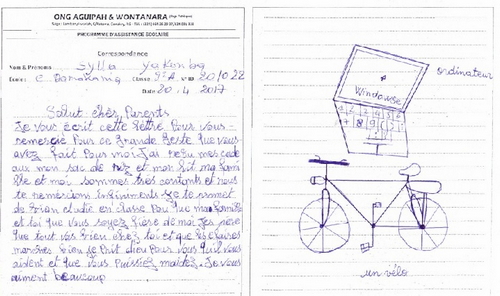 ONG AGUIPAH & WONTANARA
PROGRAMME D'ASSISTANCE SCOLAIRE
Correspondance
Nom & Prénoms: Sylla Yakouba
Ecole: Classe: N° 20/022
Date: 20.4.2017
Salut chers Parents
Je vous ecrit cette lettre Pour vous
remercie Pour ce Grande Geste Que vous
avez fait Pour moi J'ai reçu mes cade
aux mon sac de riz et mon lit ma fami
lle et moi sommes tres contants et nous
te remersions infiniments Je te promet
de Brian etudie en classe Pou Que ma famille
et toi Que vous soyez fière de moi
Que tout vas bien chez toi et que
marches bien Je Prit dieu Pour vous Qu'il vous
aident et Que vous Puissiez Je vous
aiment beaucoup
ordinateur
Windowse
un vélo